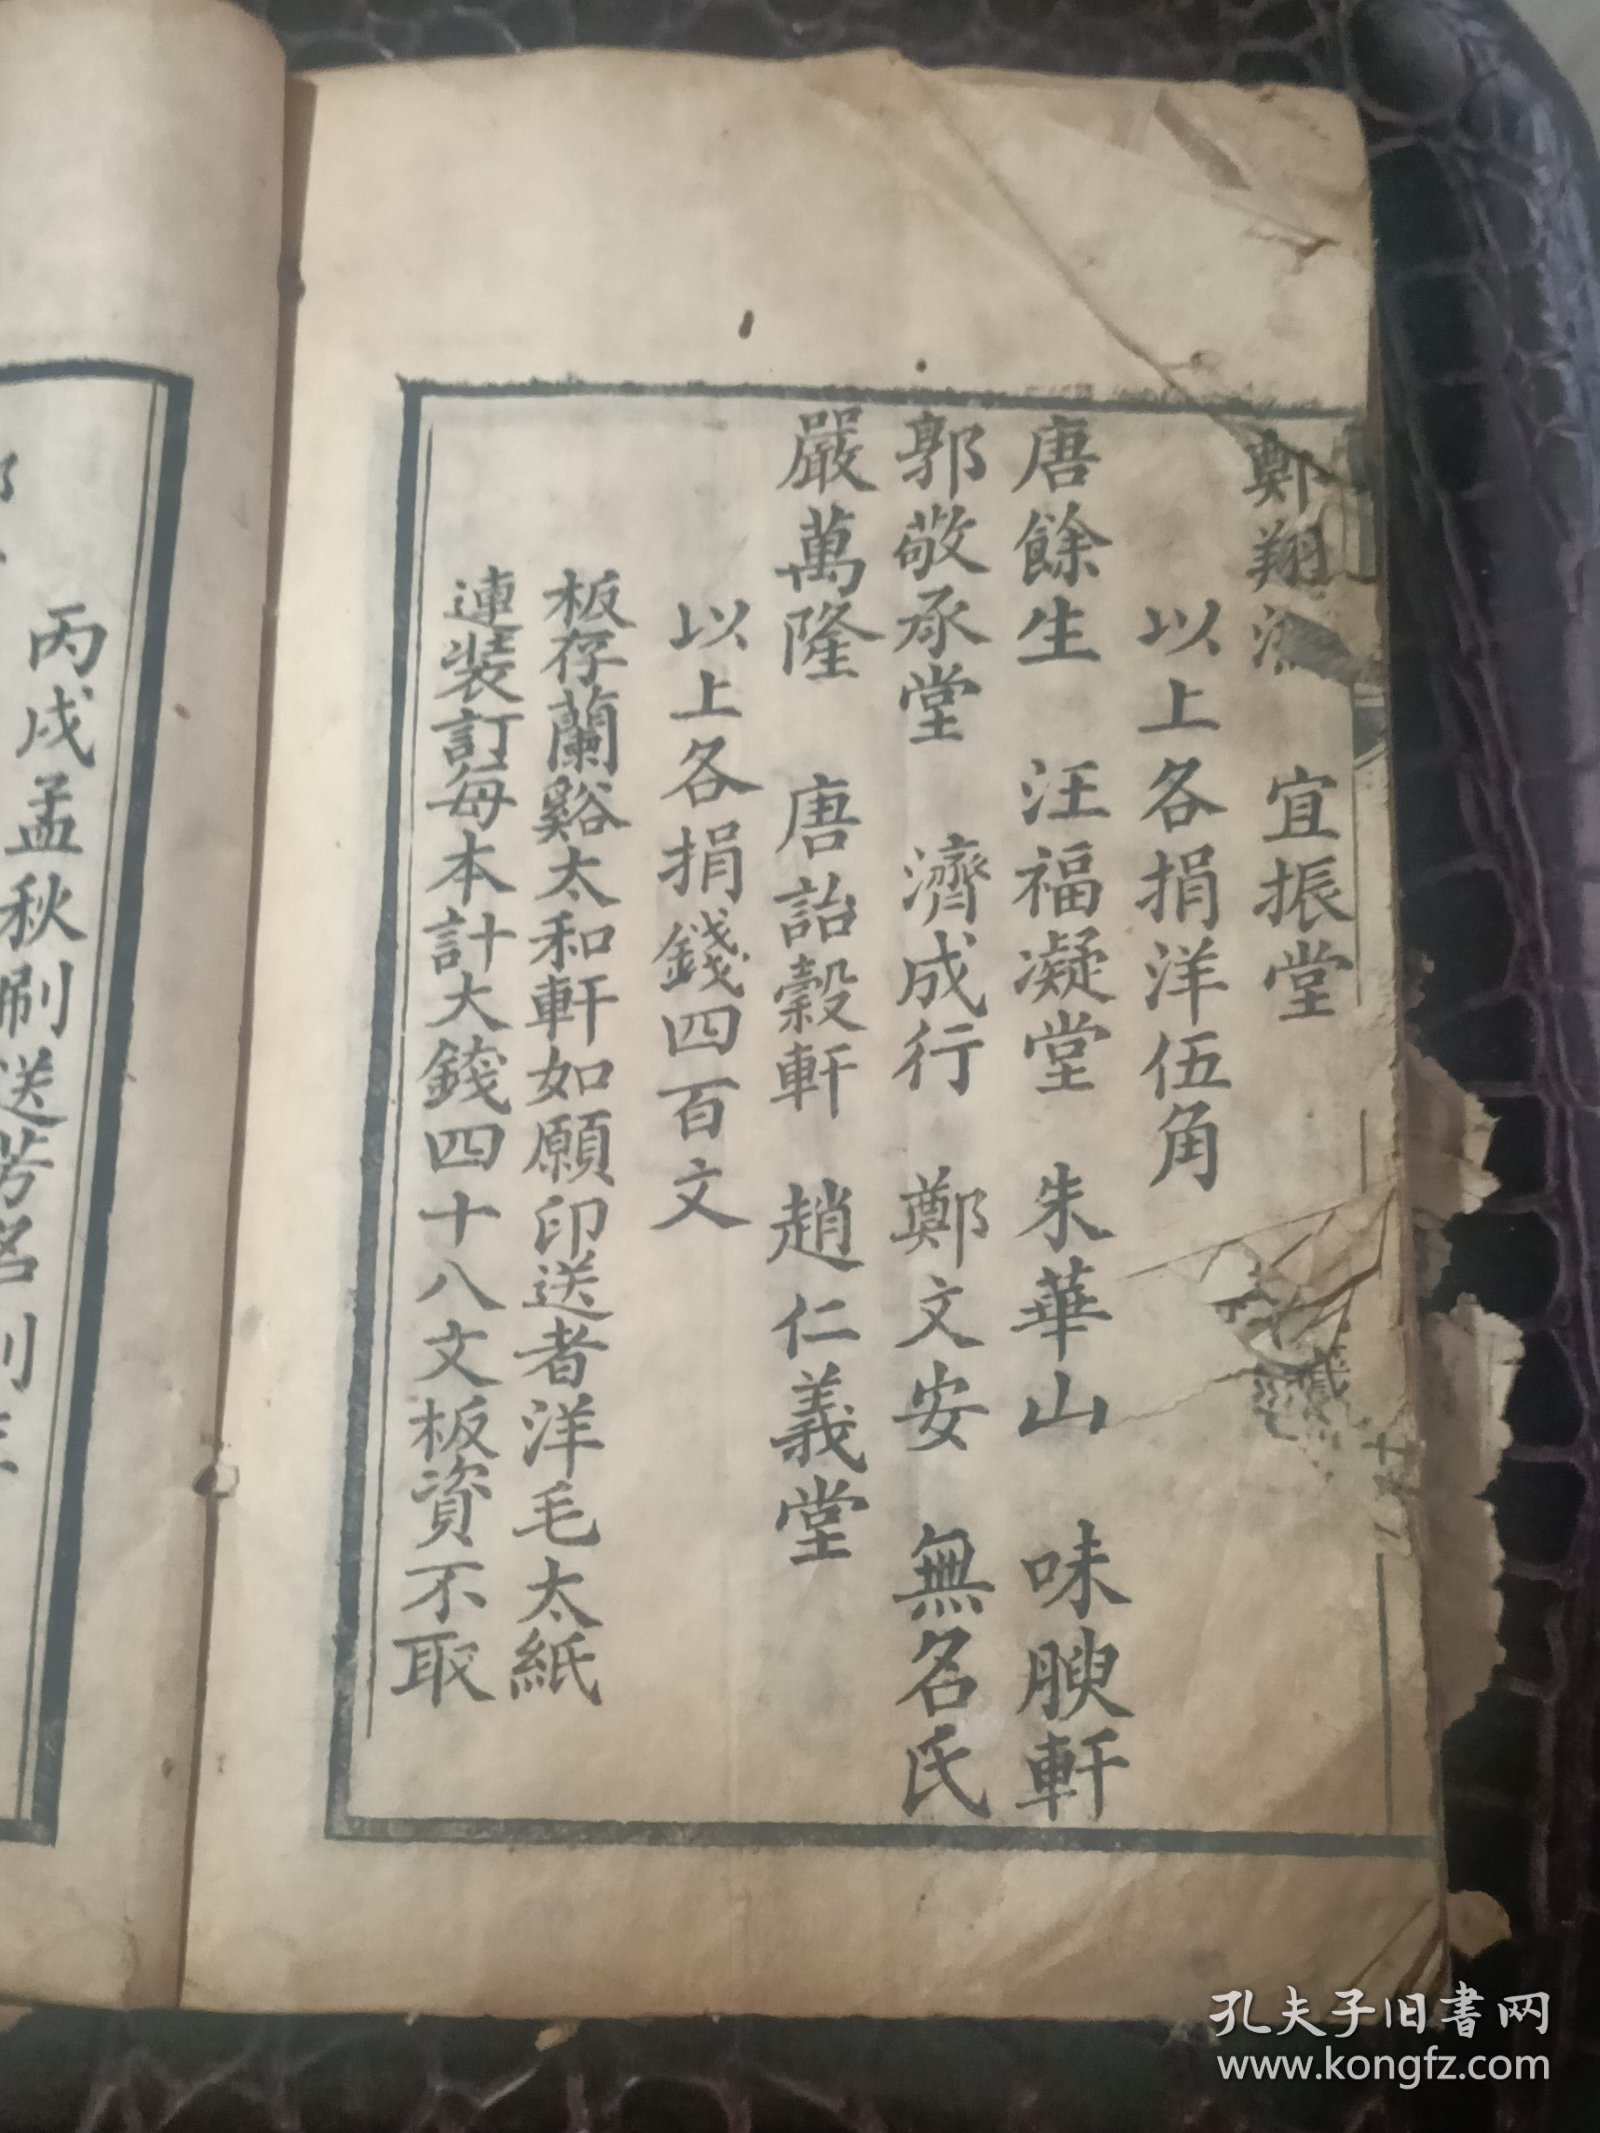 鄭翔 宜振堂
以上各捐洋伍角
唐餘生 汪福凝堂 朱華山 味腴軒
郭敬承堂 濟成行 鄭文安 無名氏
嚴萬隆 唐詒穀軒 趙仁義堂
以上各捐錢四百文
板存蘭谿太和軒如願印送者洋毛太紙
連裝訂每本計大錢四十八文板資不取
丙戌孟秋刷送芳名列
孔夫子旧書网
www.kongfz.com